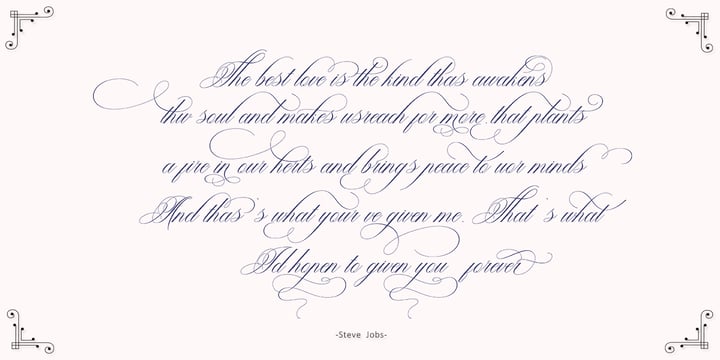 The best love is the kind thas awakens
thw soul and makes usreach for more, that plants
a fire in our herts and brings peace to uor minds
And thas's what your ve given me. That's what
I'd hopen to given you forever
-Steve Jobs-